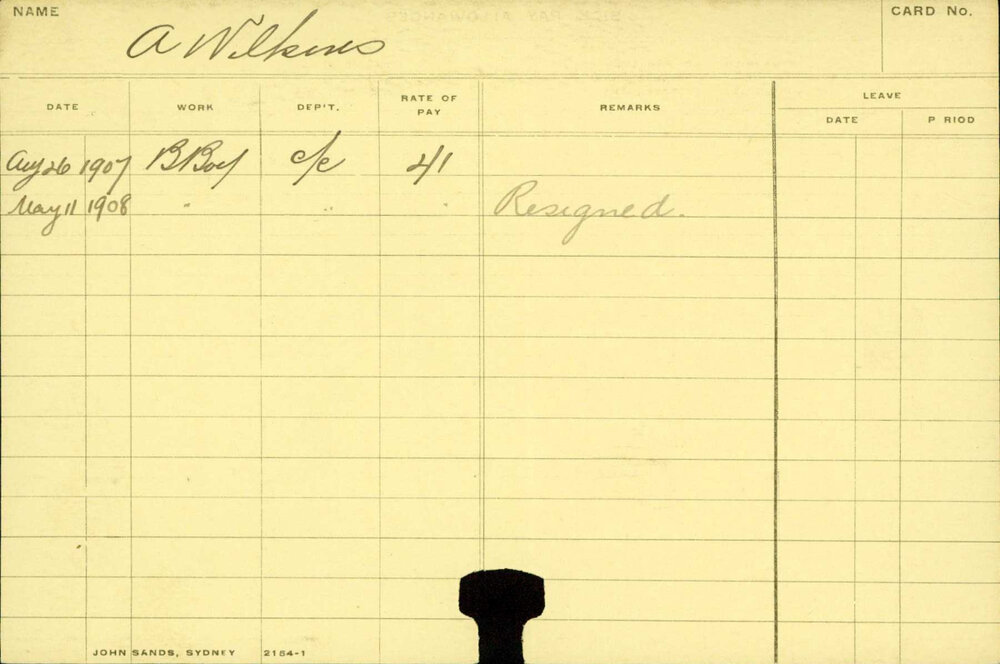 NAME
A Wilkins
CARD No.
DATE WORK DEP'T. RATE OF PAY REMARKS LEAVE
DATE P RIOD
Aug 26 1907 B Boy c/c 4/1
May 11 1908 " " " Resigned.
JOHN SANDS, SYDNEY 2154-1